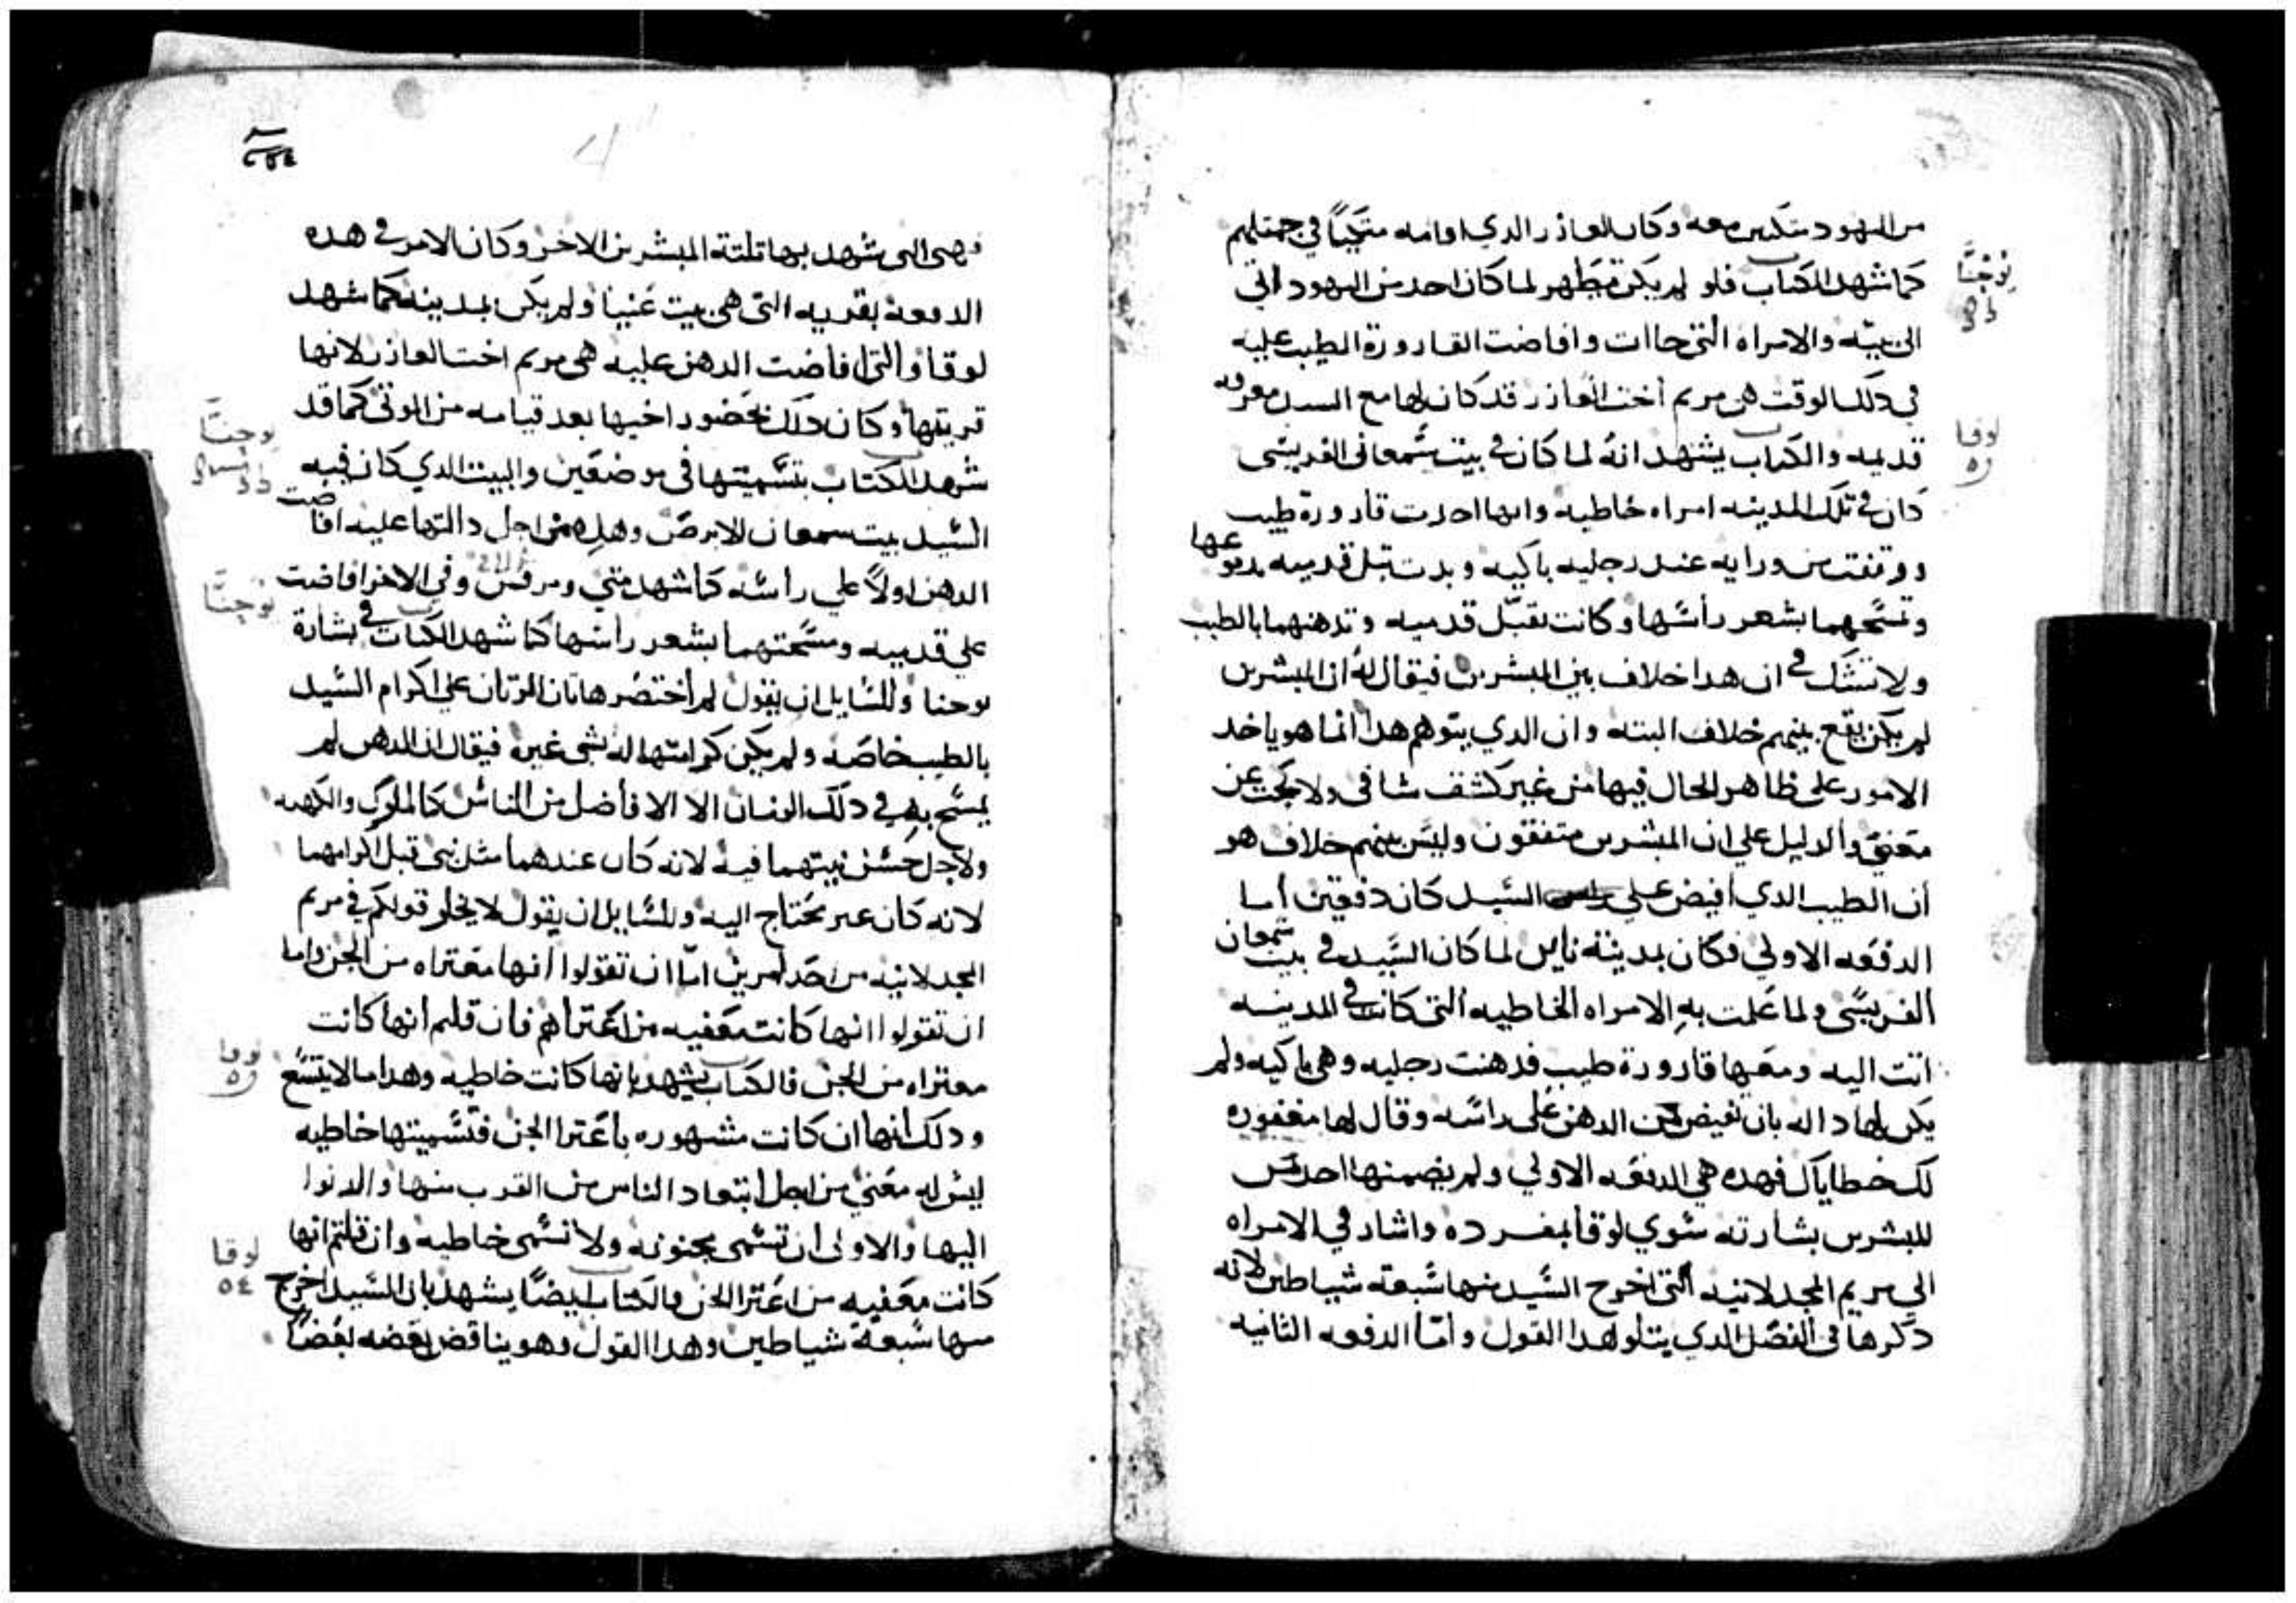 من اليهود متكيين معه وكان العازر الدي اقامه متكياً في جمتلهم
كما شهد الكتاب فلو لم يكن تطهر لما كان احد من اليهود اتي
الي بيته والامراه التي جاات وافاضت القارورة الطيب عليه
في دلك الوقت هي مريم أخت العازر قد كان لها مع السيد معرفه
قديمه والكتاب يشهد انهُ لما كان في بيت شمعان الفريسى
كان في تلك المدينه امراه خاطيه وانها اخدت قارورة طيب
ووقفت من ورايه عند رجليه باكيه وبدت تبل قدميه بدموعها
وتمسحهما بشعر رأسها وكانت تقبّل قدميه وتدهنهما بالطيب
ولا تشك في ان هدا خلاف بين المبشرين فيقال لهُ ان المبشرين
لم يكن يقع بينهم خلاف البته وان الدي يتوهم هدا انما هو ياخد
الامور على ظاهر الحال فيها من غير كشف شافى ولا بحث عن
معنىً والدليل علي ان المبشرين متفقون وليس بينهم خلاف هو
أن الطيب الدي أفيض علي السيد كان دفعتين أما
الدفعه الاولي فكان بمدينة نايين لما كان السيد في بيت شمعان
الفريسى ولما علمت بهِ الامراه الخاطيه التى كانت في المدينه
اتت اليه ومعها قارورة طيب فدهنت رجليه وهي باكيه ولم
يكن لها داله بان تفيض من الدهن على راسه وقال لها مغفوره
لك خطاياك فهده هي الدفعه الاولي ولم يضمنها احد من
المبشرين بشارته سوي لوقا بمفرده واشار في الامراه
الي مريم المجدلانيه التى اخرج السيد منها سبعة شياطين لانه
دكرها في الفصل الدي يتلو هدا القول وأمّا الدفعه الثانيه
يوحنّا
لوقا
فهى التى شهد بها تلتة المبشرين الاخر وكان الامر في هده
الدفعة بقريه التى هى بيت عنيا ولم يكن بمدينه كما شهد
لوقا والتى افاضت الدهن عليه هى مريم اخت العازر لانها
قريتها وكان دلك بحضور اخيها بعد قيامه من الموتى كما قد
شهد الكتاب بتسميتها فى موضعين والبيت الدي كان فيه
السيد بيت سمعان الابرص وهل من اجل دالتها عليه افاضت
الدهن اولاً علي راسه كما شهد متي ومرقس وفي الاخر افاضت
علي قدميه ومسحتهما بشعر راسها كما شهد الكتاب في بشارة
يوحنا وللسايل ان يقول لم أختصر هاتان المرتان علي اكرام السيد
بالطيب خاصه ولم يكن كرامتها له بشي غيره فيقال ان الدهن لم
يمسح به في دلك الزمان الا الافاضل من الناس كالملوك والكهنه
ولاجل حسن نيتهما فيه لانه كان عندهما مثل نبى قبل اكرامهما
لانه كان غير محتاج اليه وللسايل ان يقول لا يخلو قولكم في مريم
المجدلانيه من احد امرين امّا ان تقولوا أنها معتراه من الجن واما
ان تقولوا انها كانت معفيه من اعتراهم فان قلتم انها كانت
معتراه من الجن فالكتاب يشهد بانها كانت خاطيه وهدا ما لا يتسع
ودلك أنها ان كانت مشهوره باعترا الجن فتسميتها خاطيه
ليس له معنى من اجل ابتعاد الناس من القرب منها والدنوا
اليها والاولى ان تسمى مجنونه ولا تسمى خاطيه وان قلتم انها
كانت معفيه من اعترا الجن فالكتاب ايضاً يشهد بان السيد اخرج
منها سبعة شياطين وهدا القول وهو يناقض بعضه بعضاً
يوحنّا
يوحنّا
لوقا
لوقا
٥٤